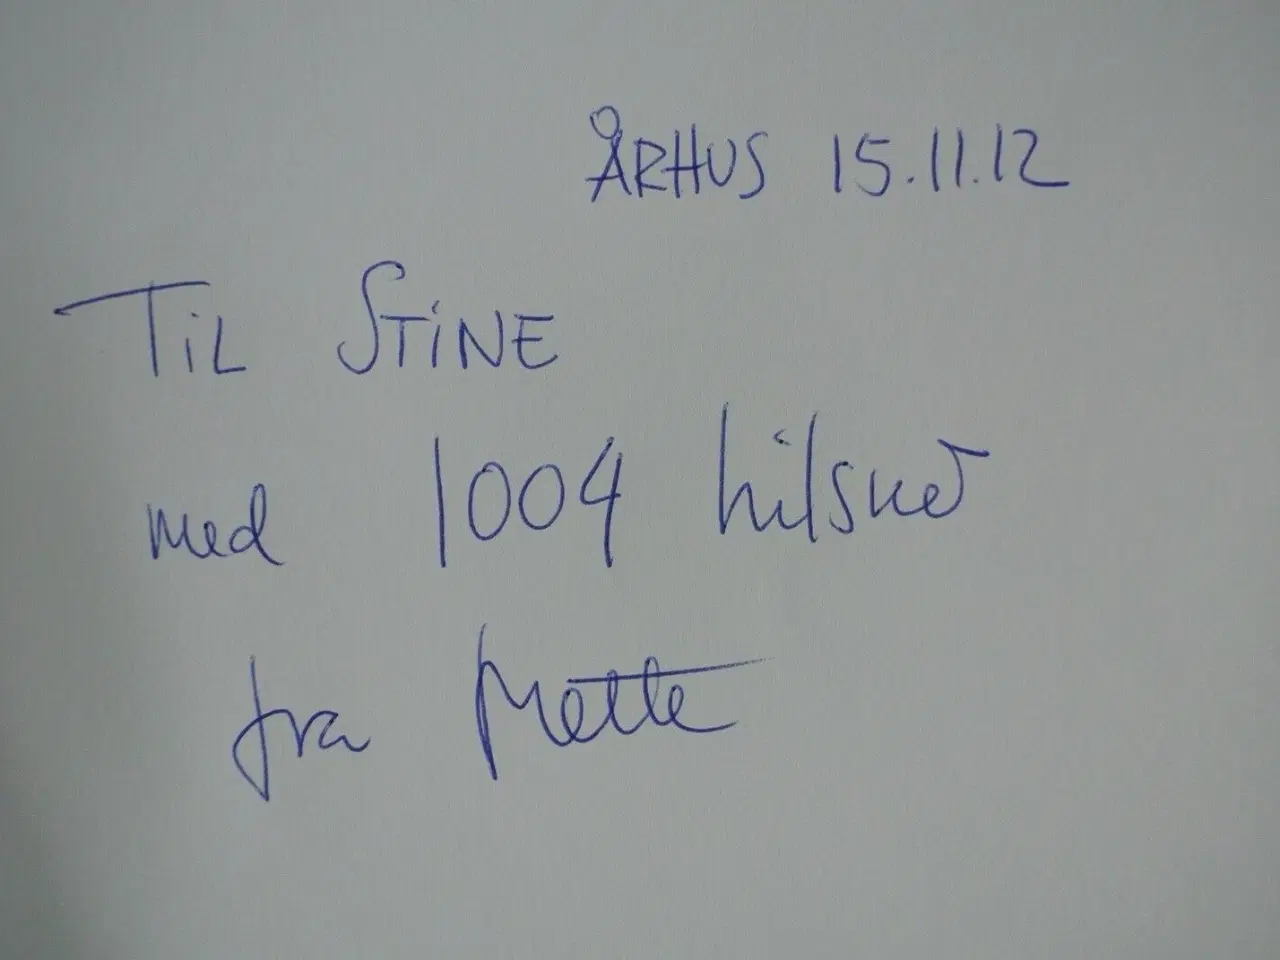 ÅRHUS 15.11.12
TiL STiNE
med 1004 hilsner
fra Mette